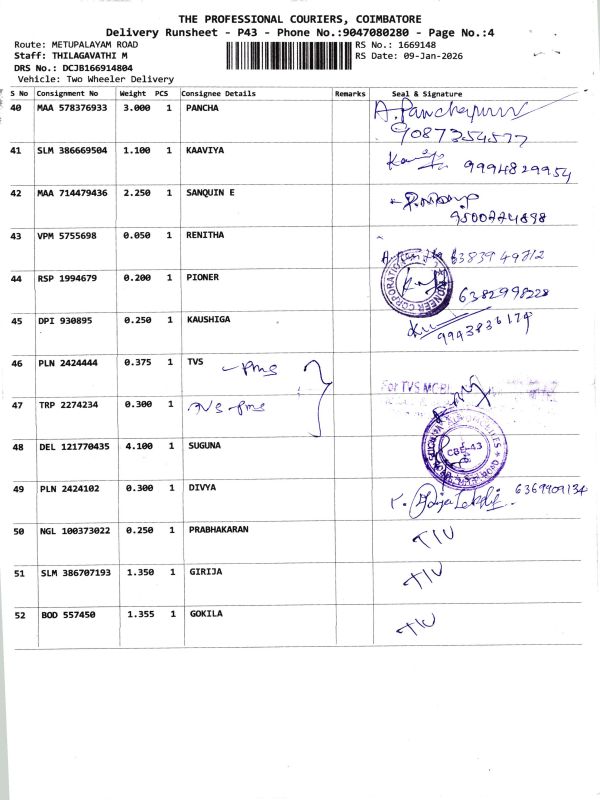 THE PROFESSIONAL COURIERS, COIMBATORE
Delivery Runsheet - P43 - Phone No.:9047080280 - Page No.:4
Route: METUPALAYAM ROAD RS No.: 1669148
Staff: THILAGAVATHI M RS Date: 09-Jan-2026
DRS No.: DCJB166914804
Vehicle: Two Wheeler Delivery
S No Consignment No Weight PCS Consignee Details Remarks Seal & Signature
40 MAA 578376933 3.000 1 PANCHA
9087354577
41 SLM 386669504 1.100 1 KAAVIYA 9994829954
42 MAA 714479436 2.250 1 SANQUIN E
43 VPM 5755698 0.050 1 RENITHA
44 RSP 1994679 0.200 1 PIONER 6382998228
45 DPI 930895 0.250 1 KAUSHIGA 9993836179
46 PLN 2424444 0.375 1 TVS - pms
For TVS
47 TRP 2274234 0.300 1 TVS - pms
48 DEL 121770435 4.100 1 SUGUNA CBE-43
49 PLN 2424102 0.300 1 DIVYA 6369909134
50 NGL 100373022 0.250 1 PRABHAKARAN
51 SLM 386707193 1.350 1 GIRIJA
52 BOD 557450 1.355 1 GOKILA